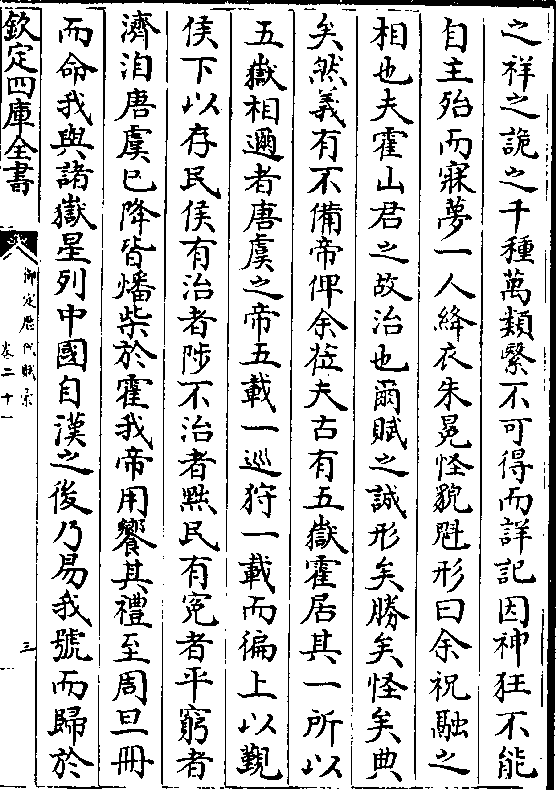 之祥之詭之千種萬類繄不可得而詳記因神狂不能
自主殆而寐夢一人絳衣朱冕怪貌魁形曰余祝融之
相也夫霍山君之故治也爾賦之誠形矣勝矣怪矣典
矣然義有不備帝俾余蒞夫古有五嶽霍居其一所以
五嶽相邇者唐虞之帝五載一巡狩一載而徧上以覲
侯下以存民侯有治者陟不治者黜民有冤者平窮者
濟洎唐虞已降皆燔柴於霍我帝用饗其禮至周旦冊
而命我與諸嶽星列中國自漢之後乃易我號而歸於
欽定四庫全書
御定歷代賦彙
卷二十一
三